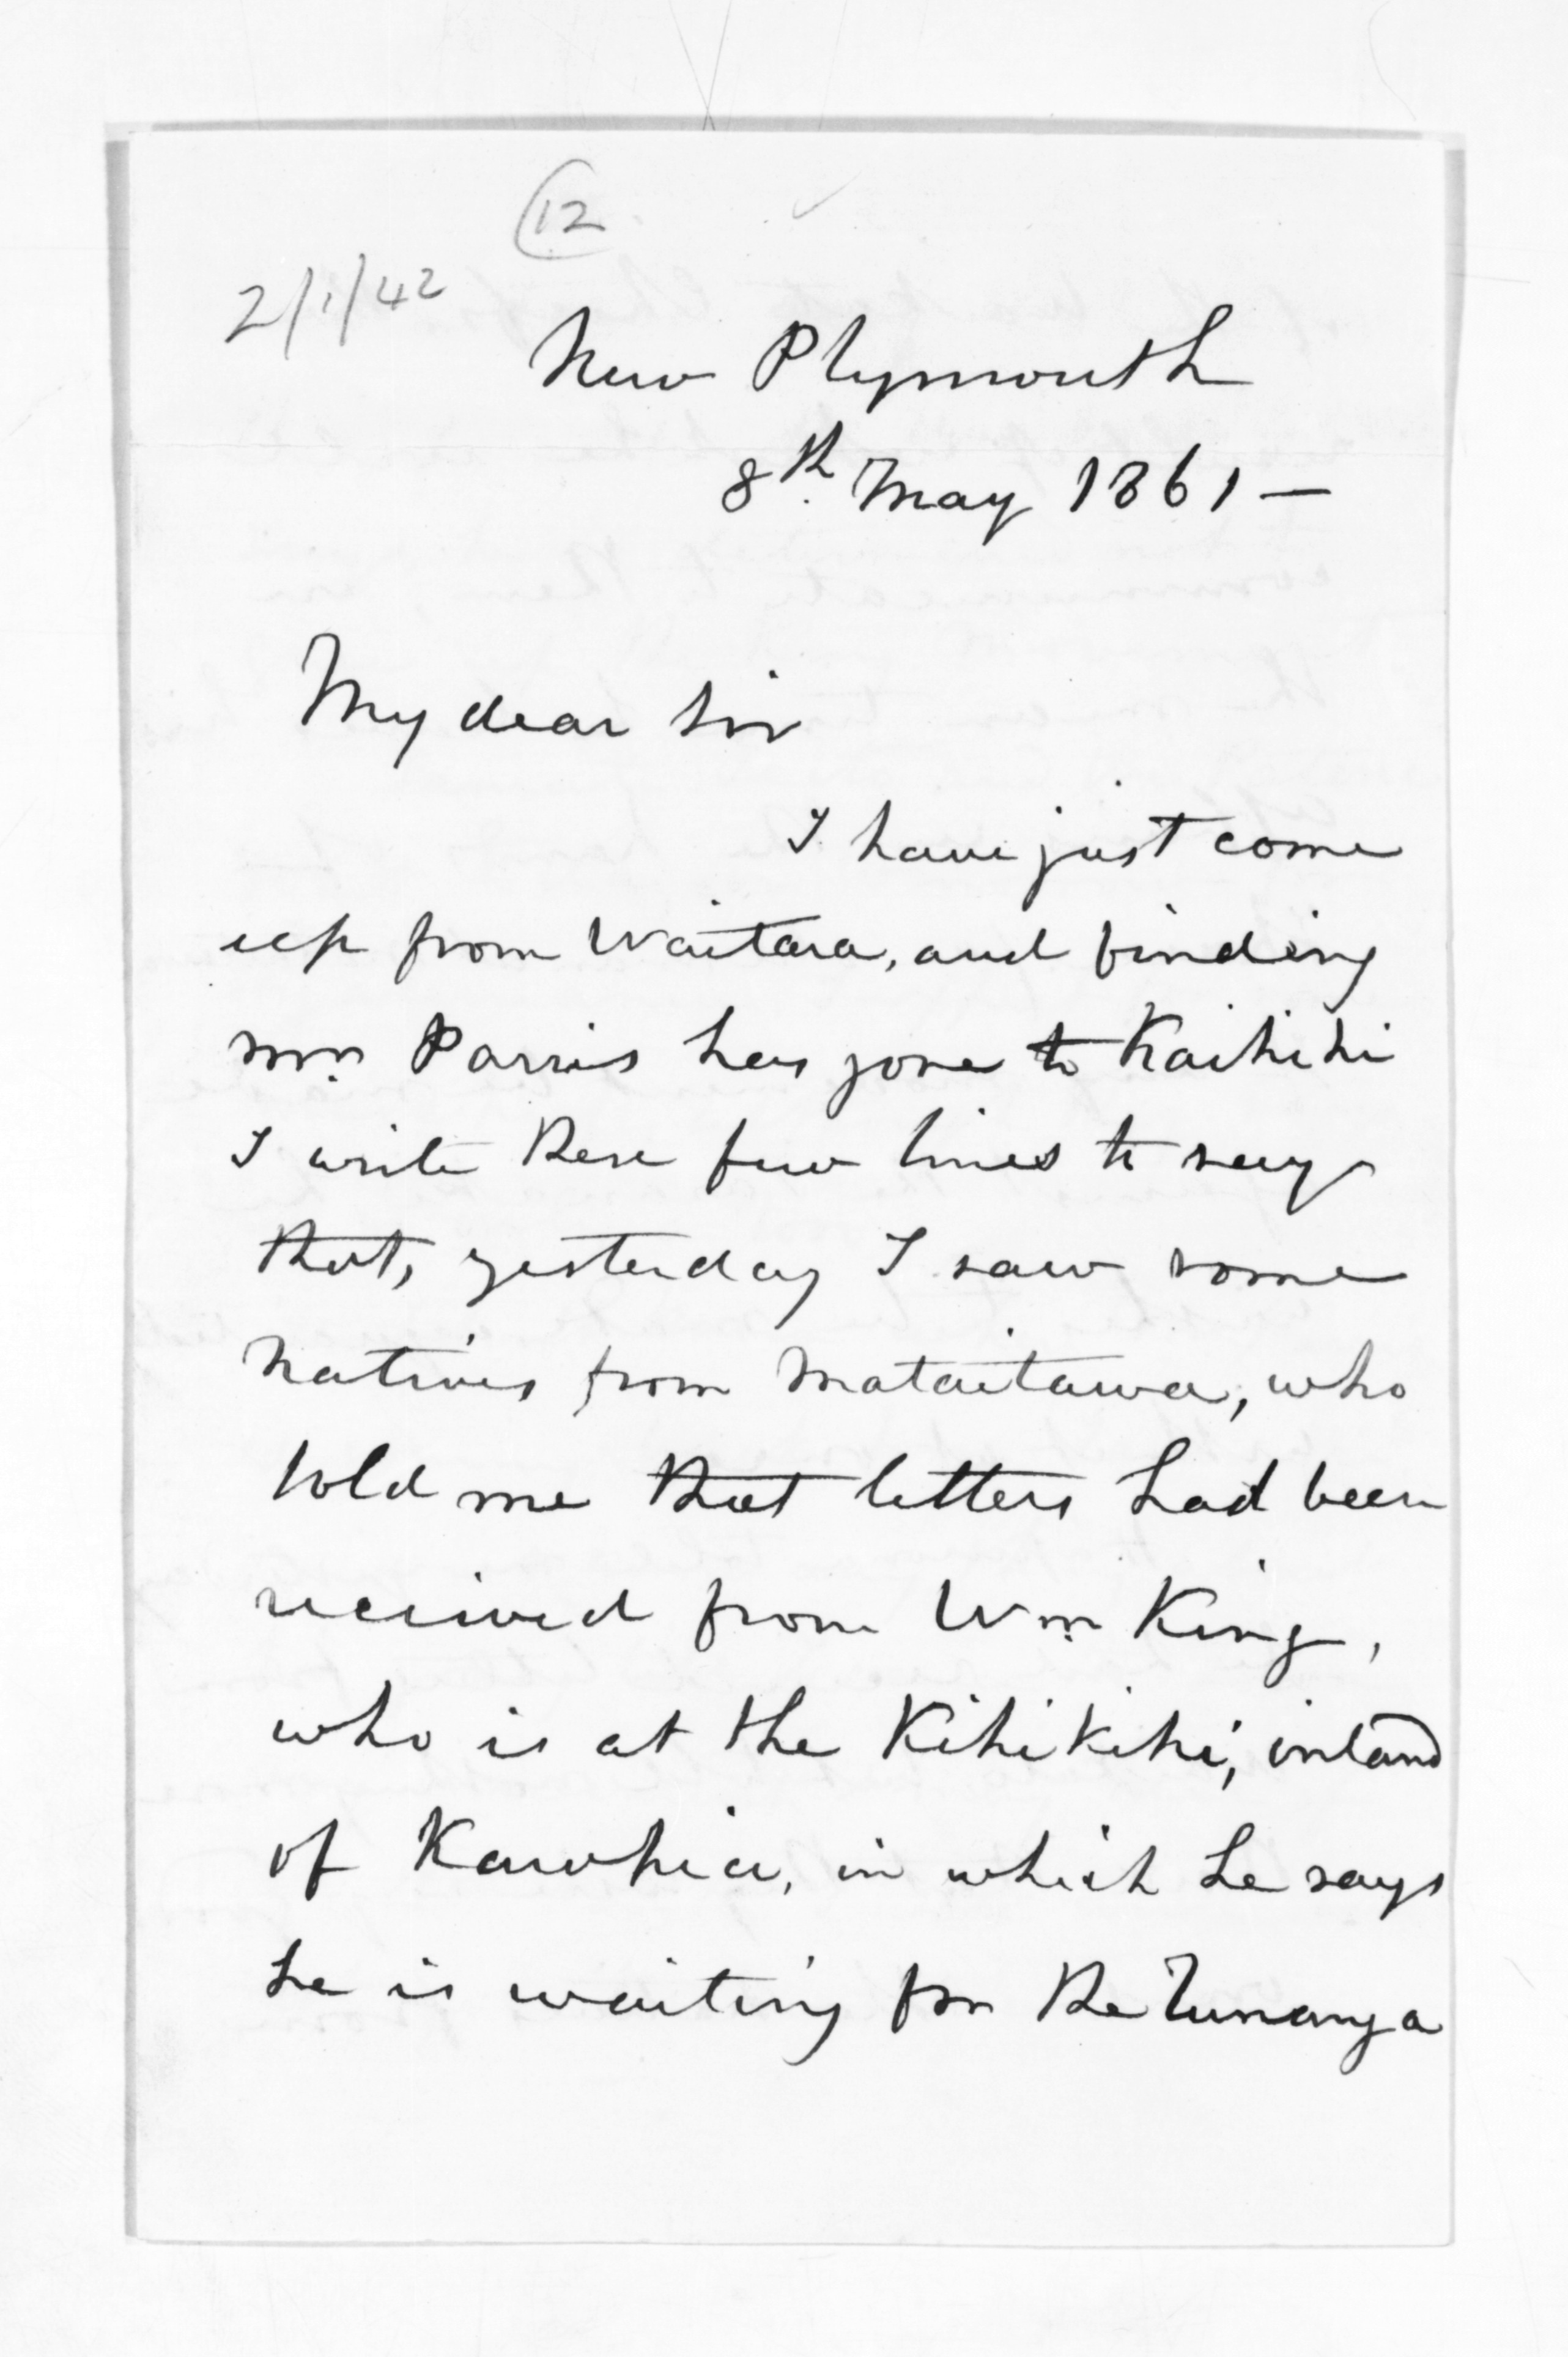 12
2/1/42
New Plymouth
8th. May 1861 —
My dear Sir
I have just come
up from Waitara, and finding
Mr. Parris has gone to Kaihihi
I write these few lines to say
that, yesterday I saw some
Natives from Mataitawa, who
told me that letters had been
received from Wm. King,
who is at the Kihikihi, inland
of Kawhia, in which he says
he is waiting for the Runanga